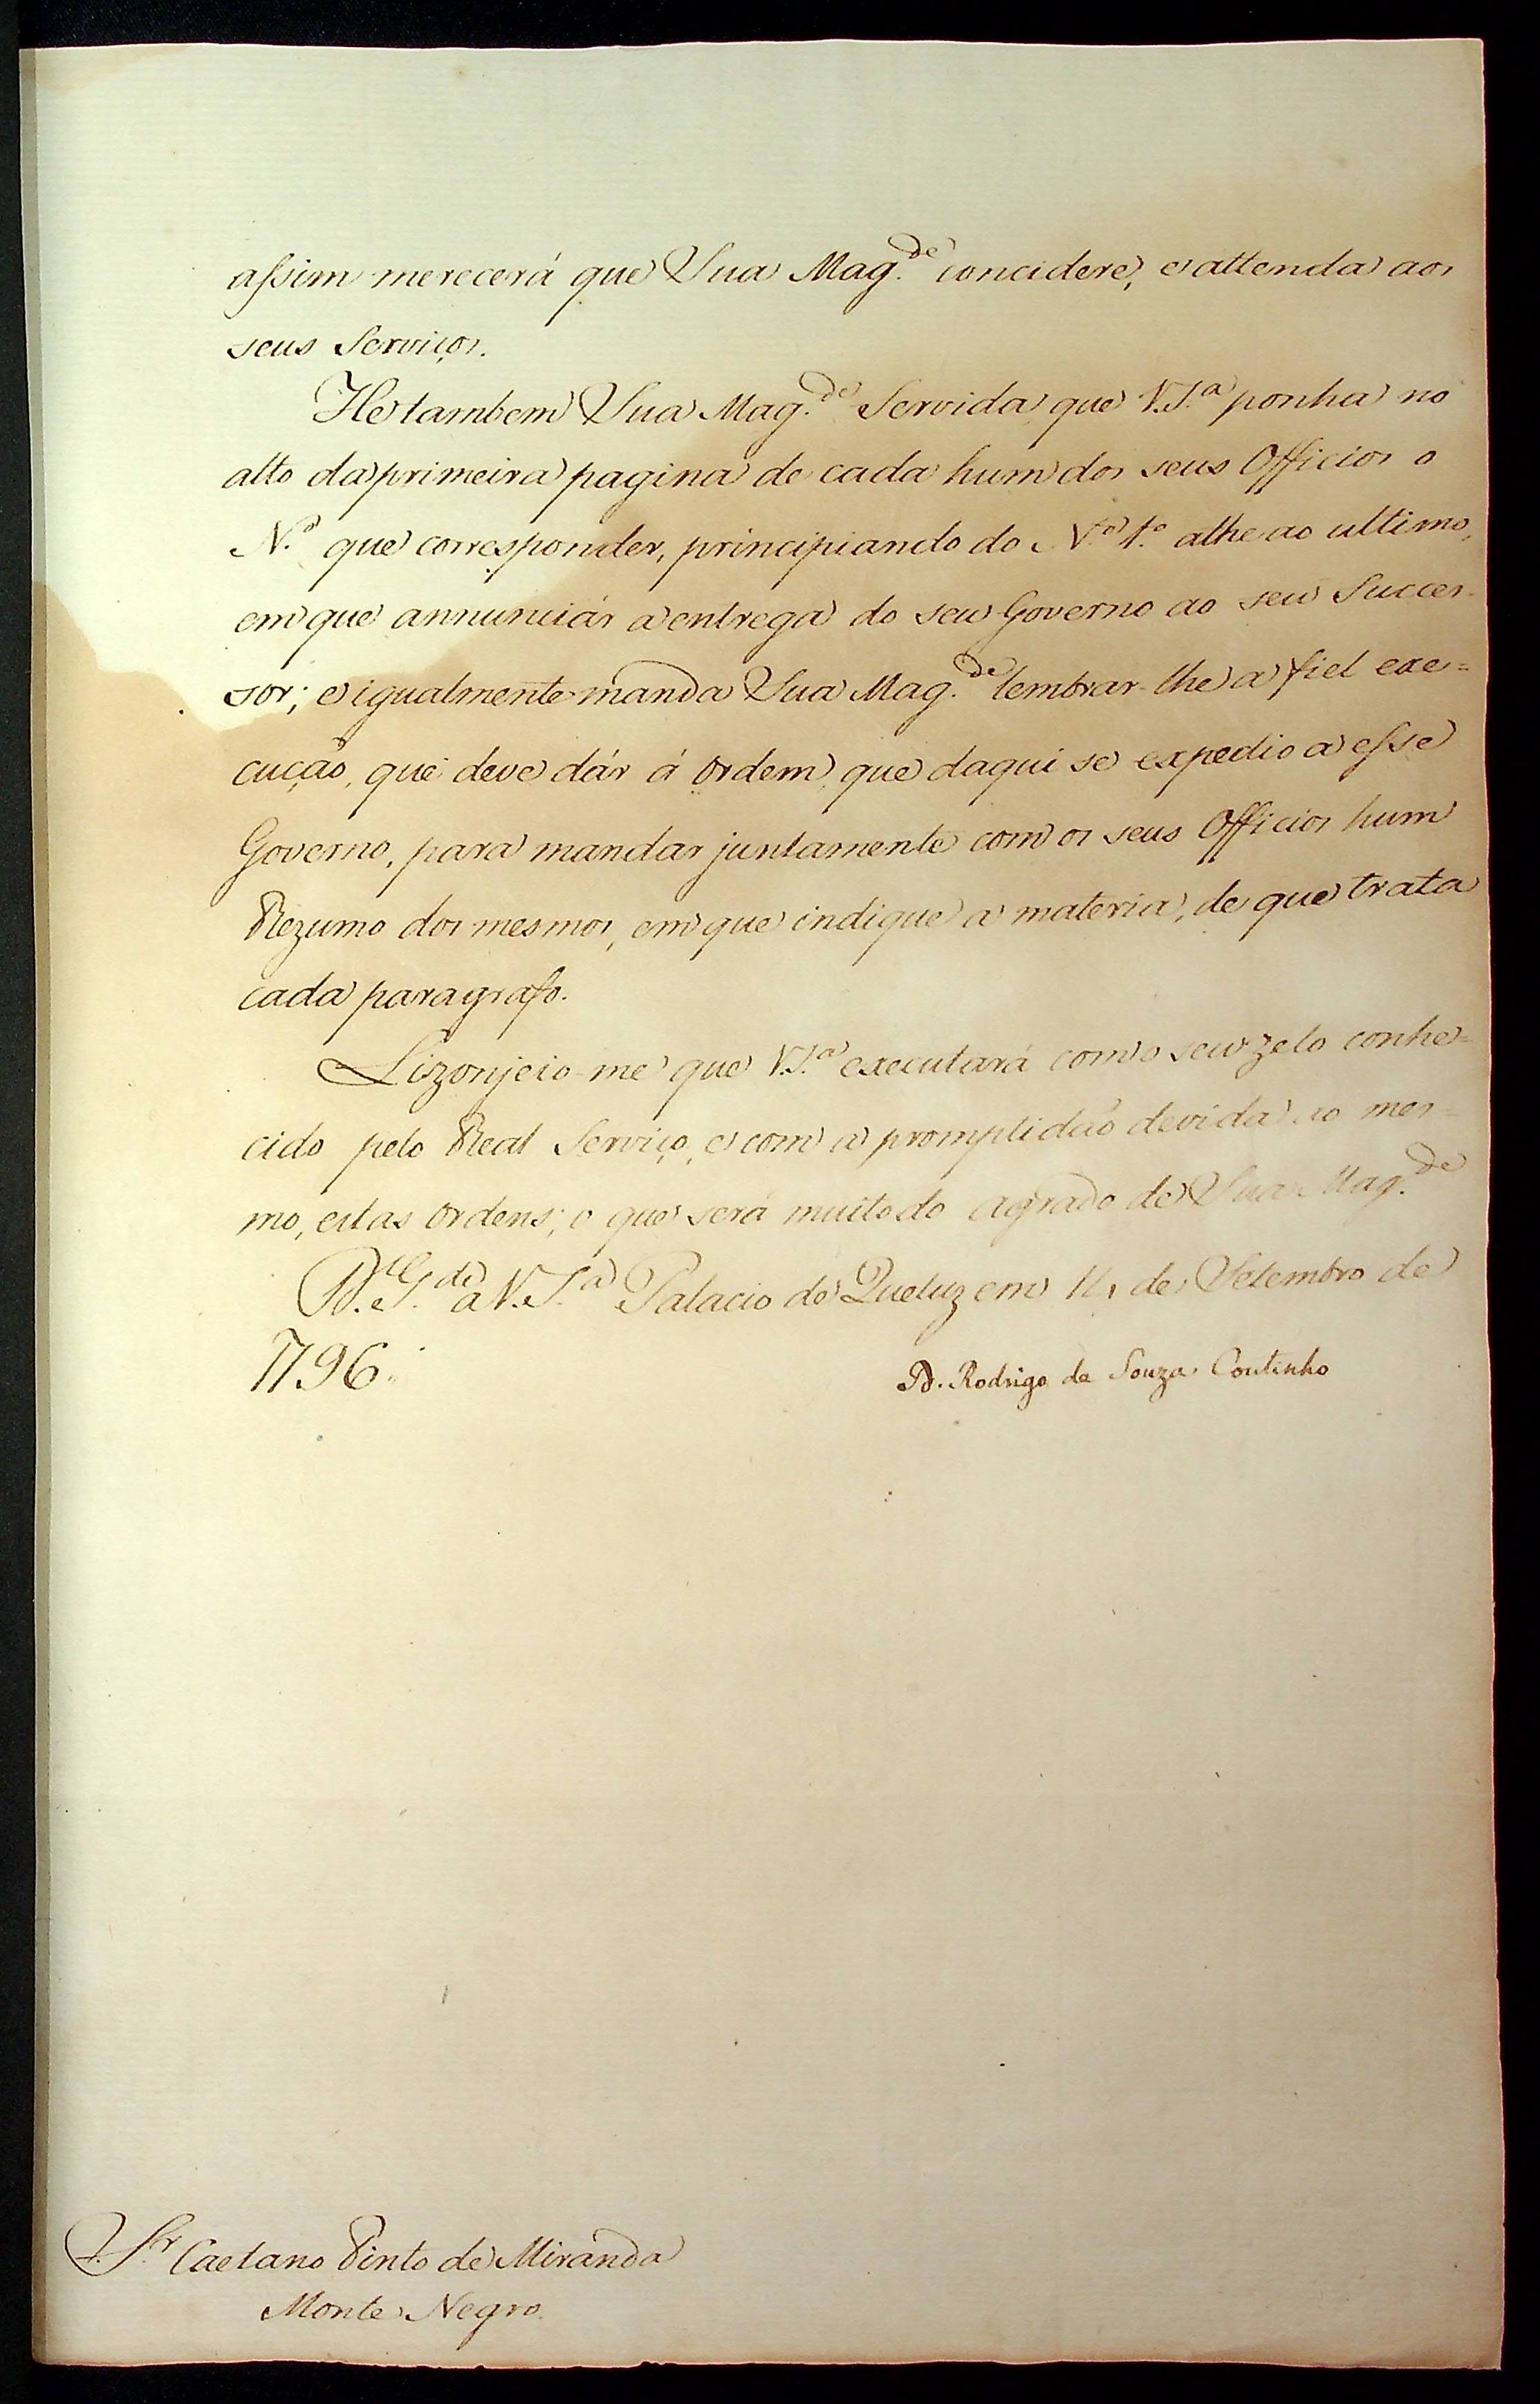 assim merecerá que Sua Mag.de concidere, e attenda aos
seus Serviços.
He tambem Sua Mag.de Servida que V.S.a ponha no
alto da primeira pagina de cada hum dos seus Officios o
N.o que corresponder, principiando do N.o 1.o athe ao ultimo,
em que annunciár a entrega do seu Governo ao seu Succes-
sor; e igualmente manda Sua Mag.de lembrar-lhe a fiel exe=
cução, que deve dár á Ordem, que daqui se expedio a esse
Governo, para mandar juntamente com os seus Officios hum
Rezumo dos mesmos, em que indique a materia, de que trata
cada paragrafo.
Lizonjeio-me que V.S.a executará com o seu zelo conhe=
cido pelo Real Serviço, e com a promptidão devida ao mes=
mo, estas Ordens; o que será muito do agrado de Sua Mag.de
D.s G.de a V.S.a Palacio de Queluz em de Setembro de
1796.
D. Rodrigo de Souza Coutinho
S.r Caetano Pinto de Miranda
Monte Negro.